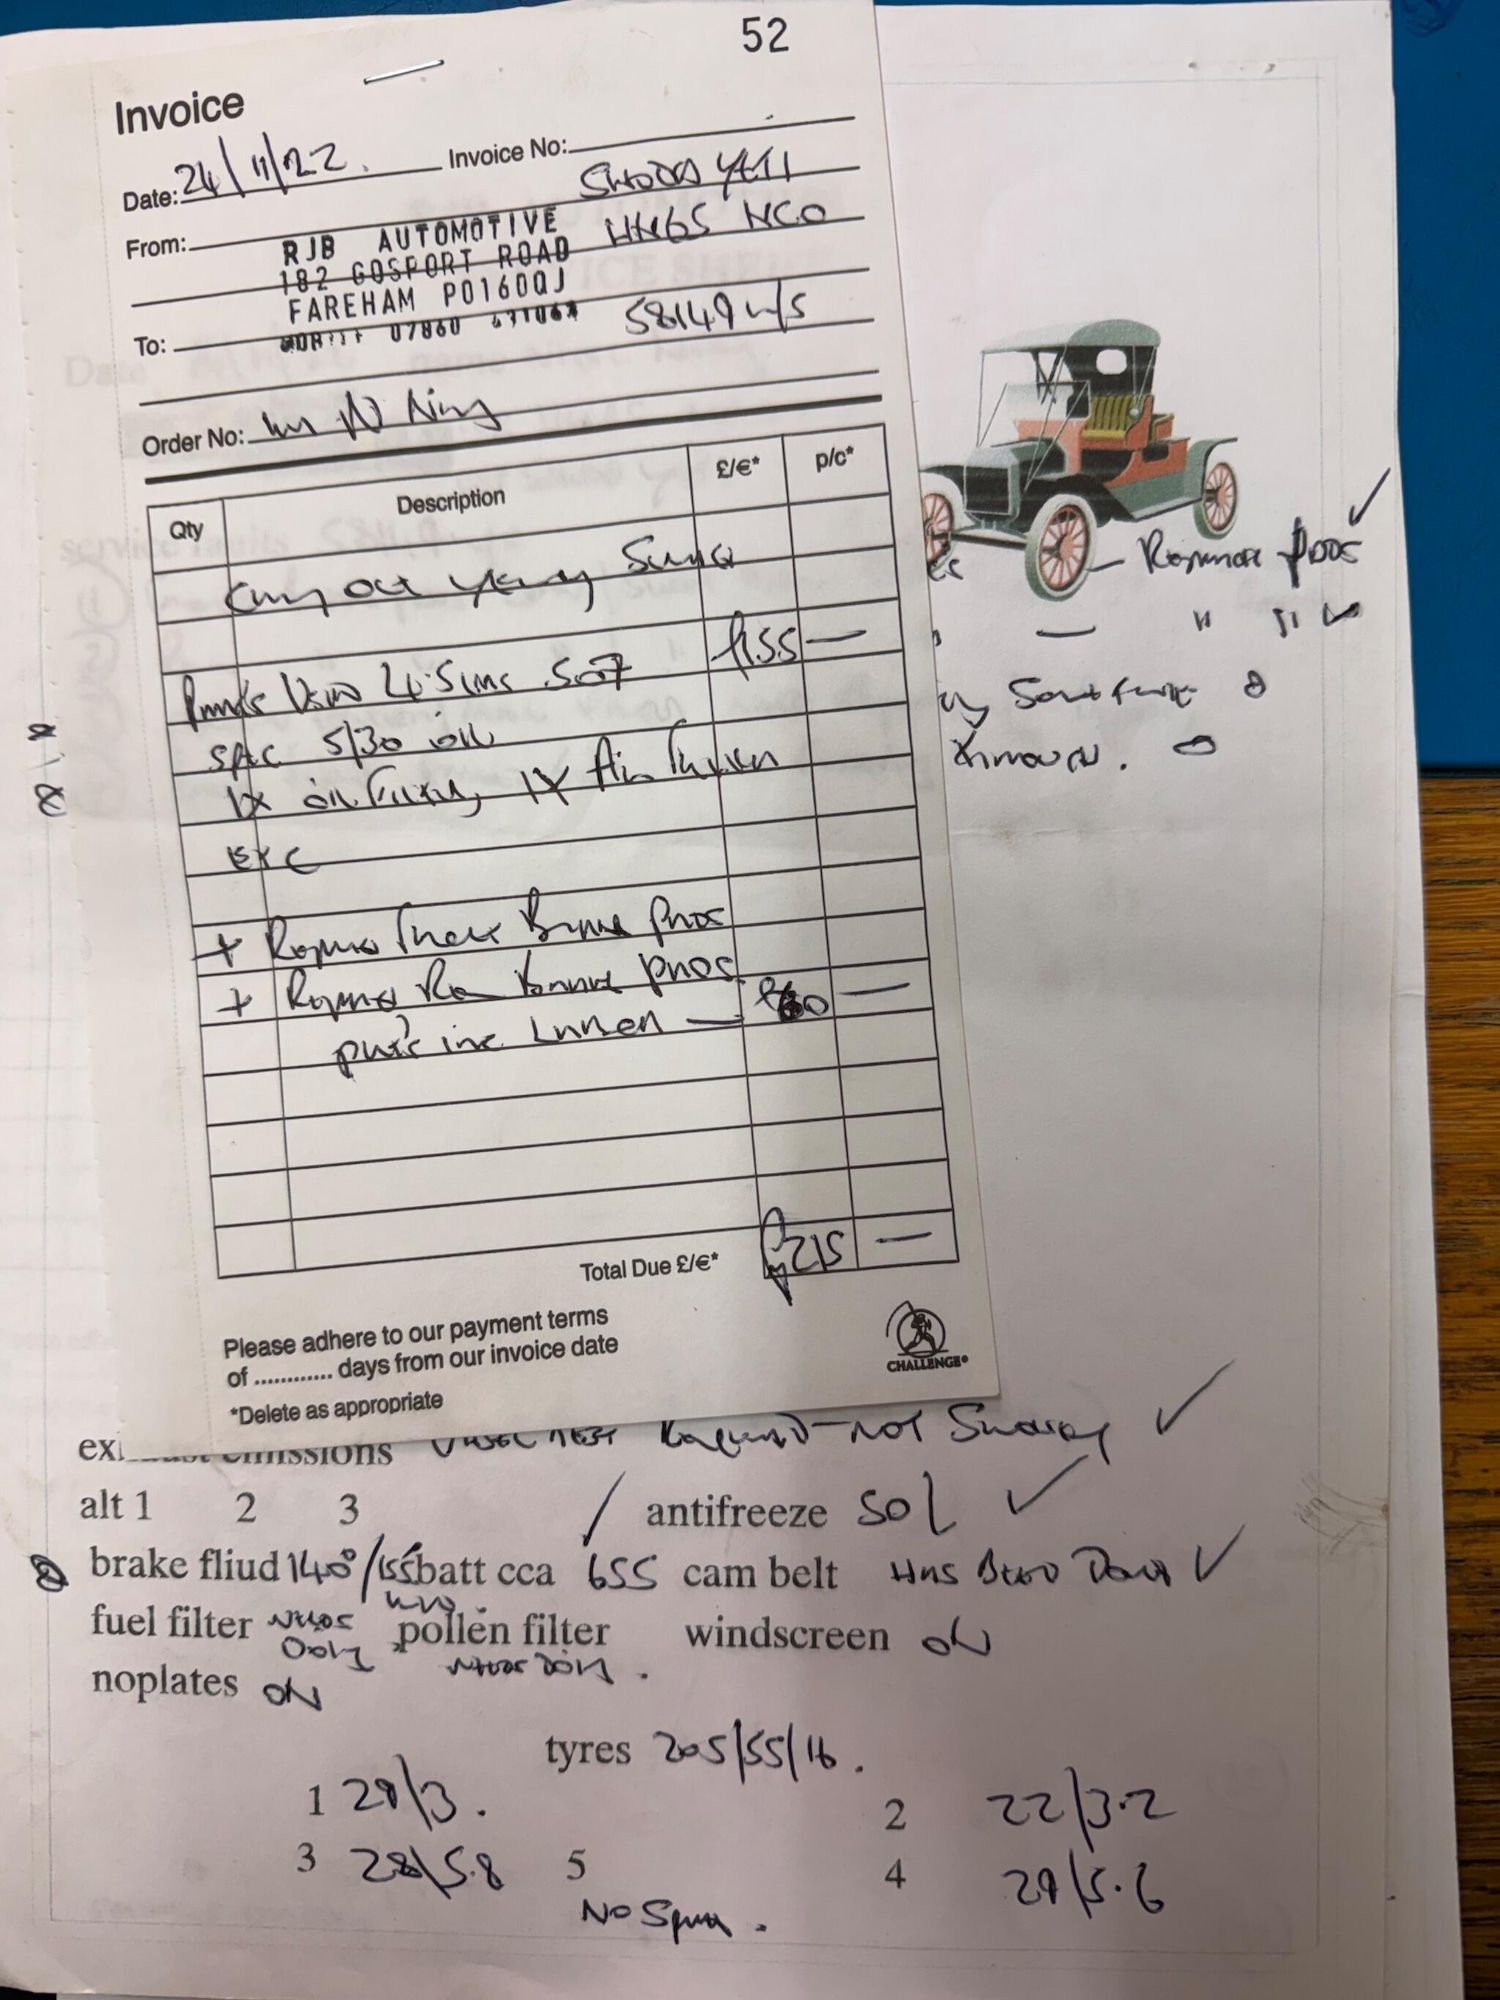 52
Invoice
Date: 24/11/22. Invoice No:
SKODA YETI
From: RJB AUTOMOTIVE
HN65 NCO
182 GOSPORT ROAD
FAREHAM PO160QJ
To: 07860
58149 m/s
Order No: Mr N King
Qty Description £/€* p/c*
Carry out yearly Service
£155 —
Parts Used 4.5 Lms 507
spec 5/30 oil
1X oil Filter, 1X Air Filter
etc
+ Replace Front Brake Pads
+ Replace Rear Brake Pads
parts inc Labour — £60 —
Total Due £/€* £215 —
Please adhere to our payment terms
of ............ days from our invoice date
*Delete as appropriate
CHALLENGE®
— Replace pads ✓
— " " ✓
exhaust emissions - not Smokey ✓
alt 1 2 3 / antifreeze 50% ✓
brake fliud 140°/155 batt cca 655 cam belt Has Been Done ✓
fuel filter Needs Doing pollen filter Needs Doing. windscreen ON
noplates ON
tyres 205/55/16.
1 29/3. 2 22/3.2
3 28/5.8 5 4 29/5.6
No Spare.